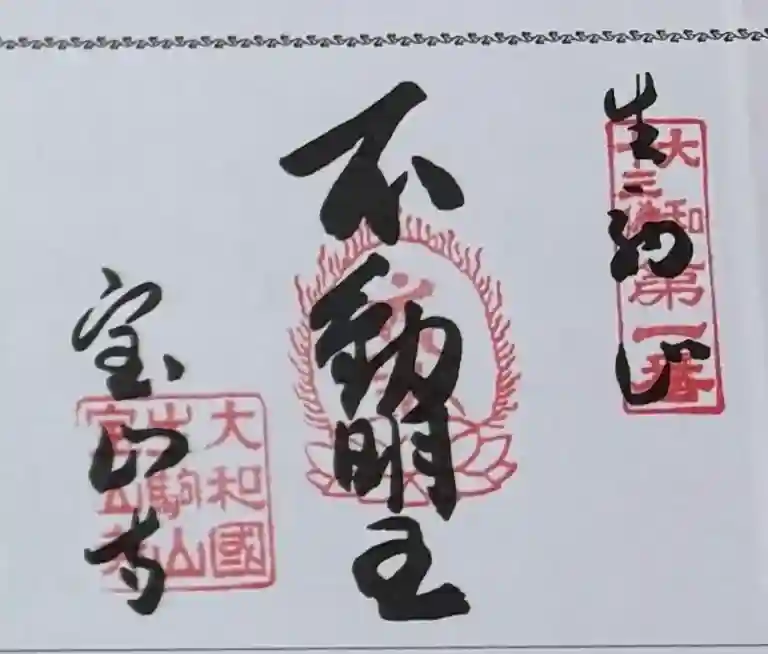 生駒山
大和
十三佛
第一番
不動明王
宝山寺
大和國
生駒山
寶山寺